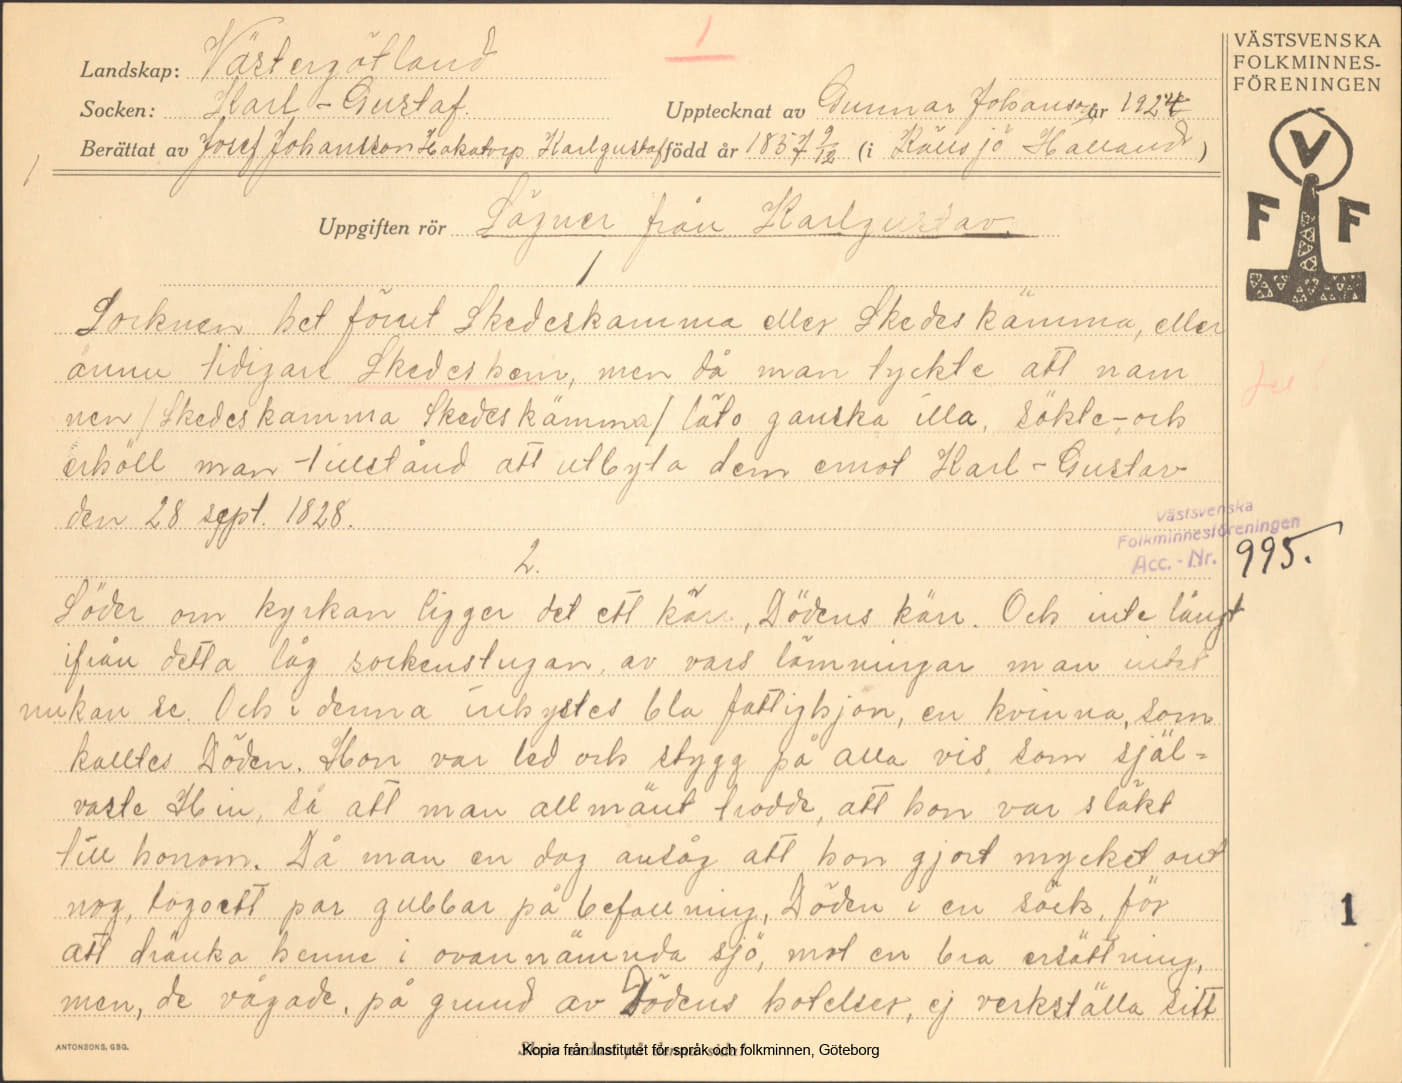 1
Landskap: Västergötland
Socken: Karl-Gustaf.
Upptecknat av Gunnar Johanson år 1924
Berättat av Josef Johansson Hakatorp Karlgustaf född år 1857 9/12 (i Källsjö Halland)
Uppgiften rör Sägner från Karlgustav.
VÄSTSVENSKA
FOLKMINNES-
FÖRENINGEN
V
F F
1
Socknen het förut Skedeskamma eller Skedeskämma, eller
ännu tidigare Skedeshem, men då man tyckte att nam
nen /Skedeskamma Skedeskämma/ läto ganska illa, sökte-, och
erhöll man tillstånd att utbyta dem emot Karl-Gustav
den 28 sept. 1828.
Västsvenska
Folkminnesföreningen
Acc.-Nr. 995.
2.
Söder om kyrkan ligger det ett kärr, Dödens kärr. Och inte långt
ifrån detta låg sockenstugan, av vars lämningar man intet
nu kan se. Och i denna inhystes bla fattighjon, en kvinna, som
kalltes Döden. Hon var led och stygg på alla vis, som själ=
vaste Hin, så att man allmänt trodde, att hon var släkt
till honom. Då man en dag ansåg att hon gjort mycket ont
nog, togo ett par gubbar på befallning, Döden i en säck, för
att dränka henne i ovannämnda sjö, mot en bra ersättning,
men, de vågade, på grund av Dödens hotelser, ej verkställa sitt
1
ANTONSONS, GBG.
Kopia från Institutet för språk och folkminnen, Göteborg